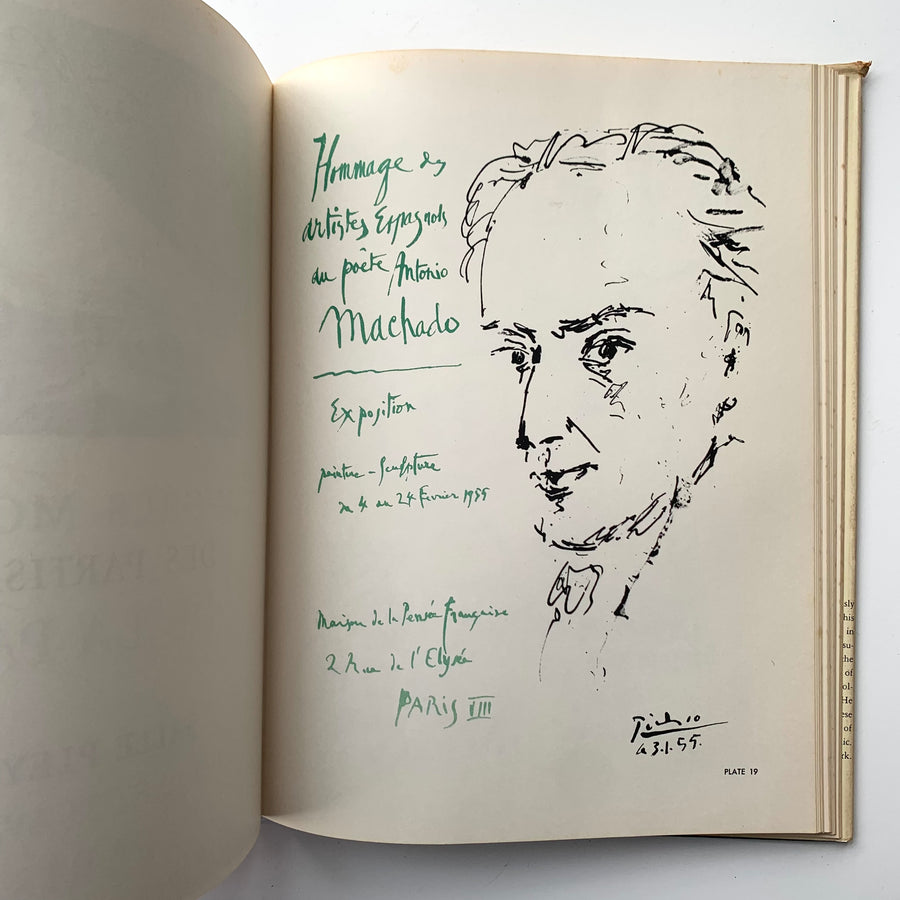 Hommage des
artistes Espagnols
au poète Antonio
Machado
Exposition
peinture - Sculpture
du 4 au 24 Février 1955
Maison de la Pensée Française
2 Rue de l'Elysée
PARIS VIII
Picasso
le 3.1.55.
PLATE 19
sly
his
in
su-
the
of
ol-
He
ese
of
ic,
rk.
DES PARTIS